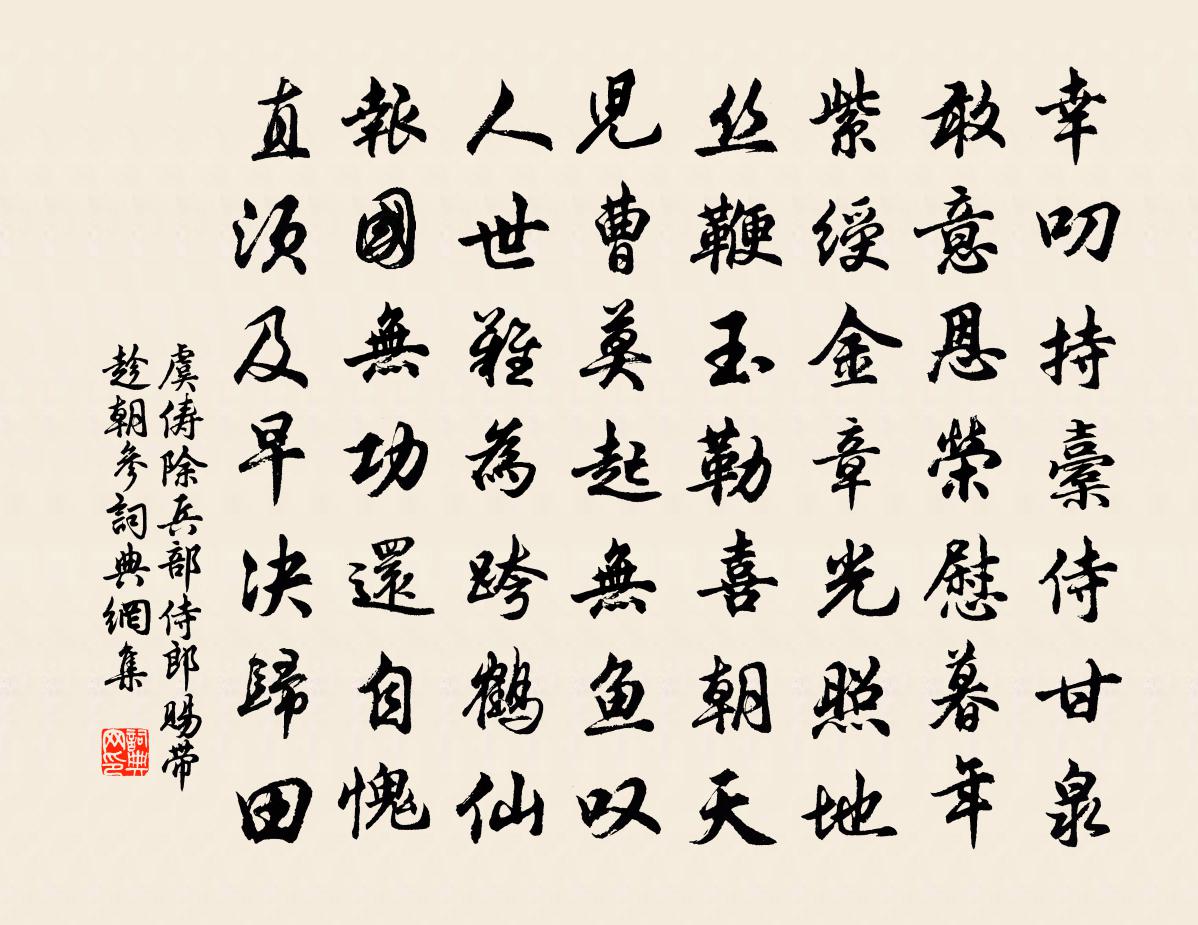 幸叨持橐侍甘泉
敢意恩榮慰暮年
紫綬金章光照地
丝鞭玉勒喜朝天
児曹莫起無鱼叹
人世难為跨鶴仙
報國無功還自愧
直须及早决歸田
虞俦除兵部侍郎賜带
趁朝参詞典網集
詞典网印